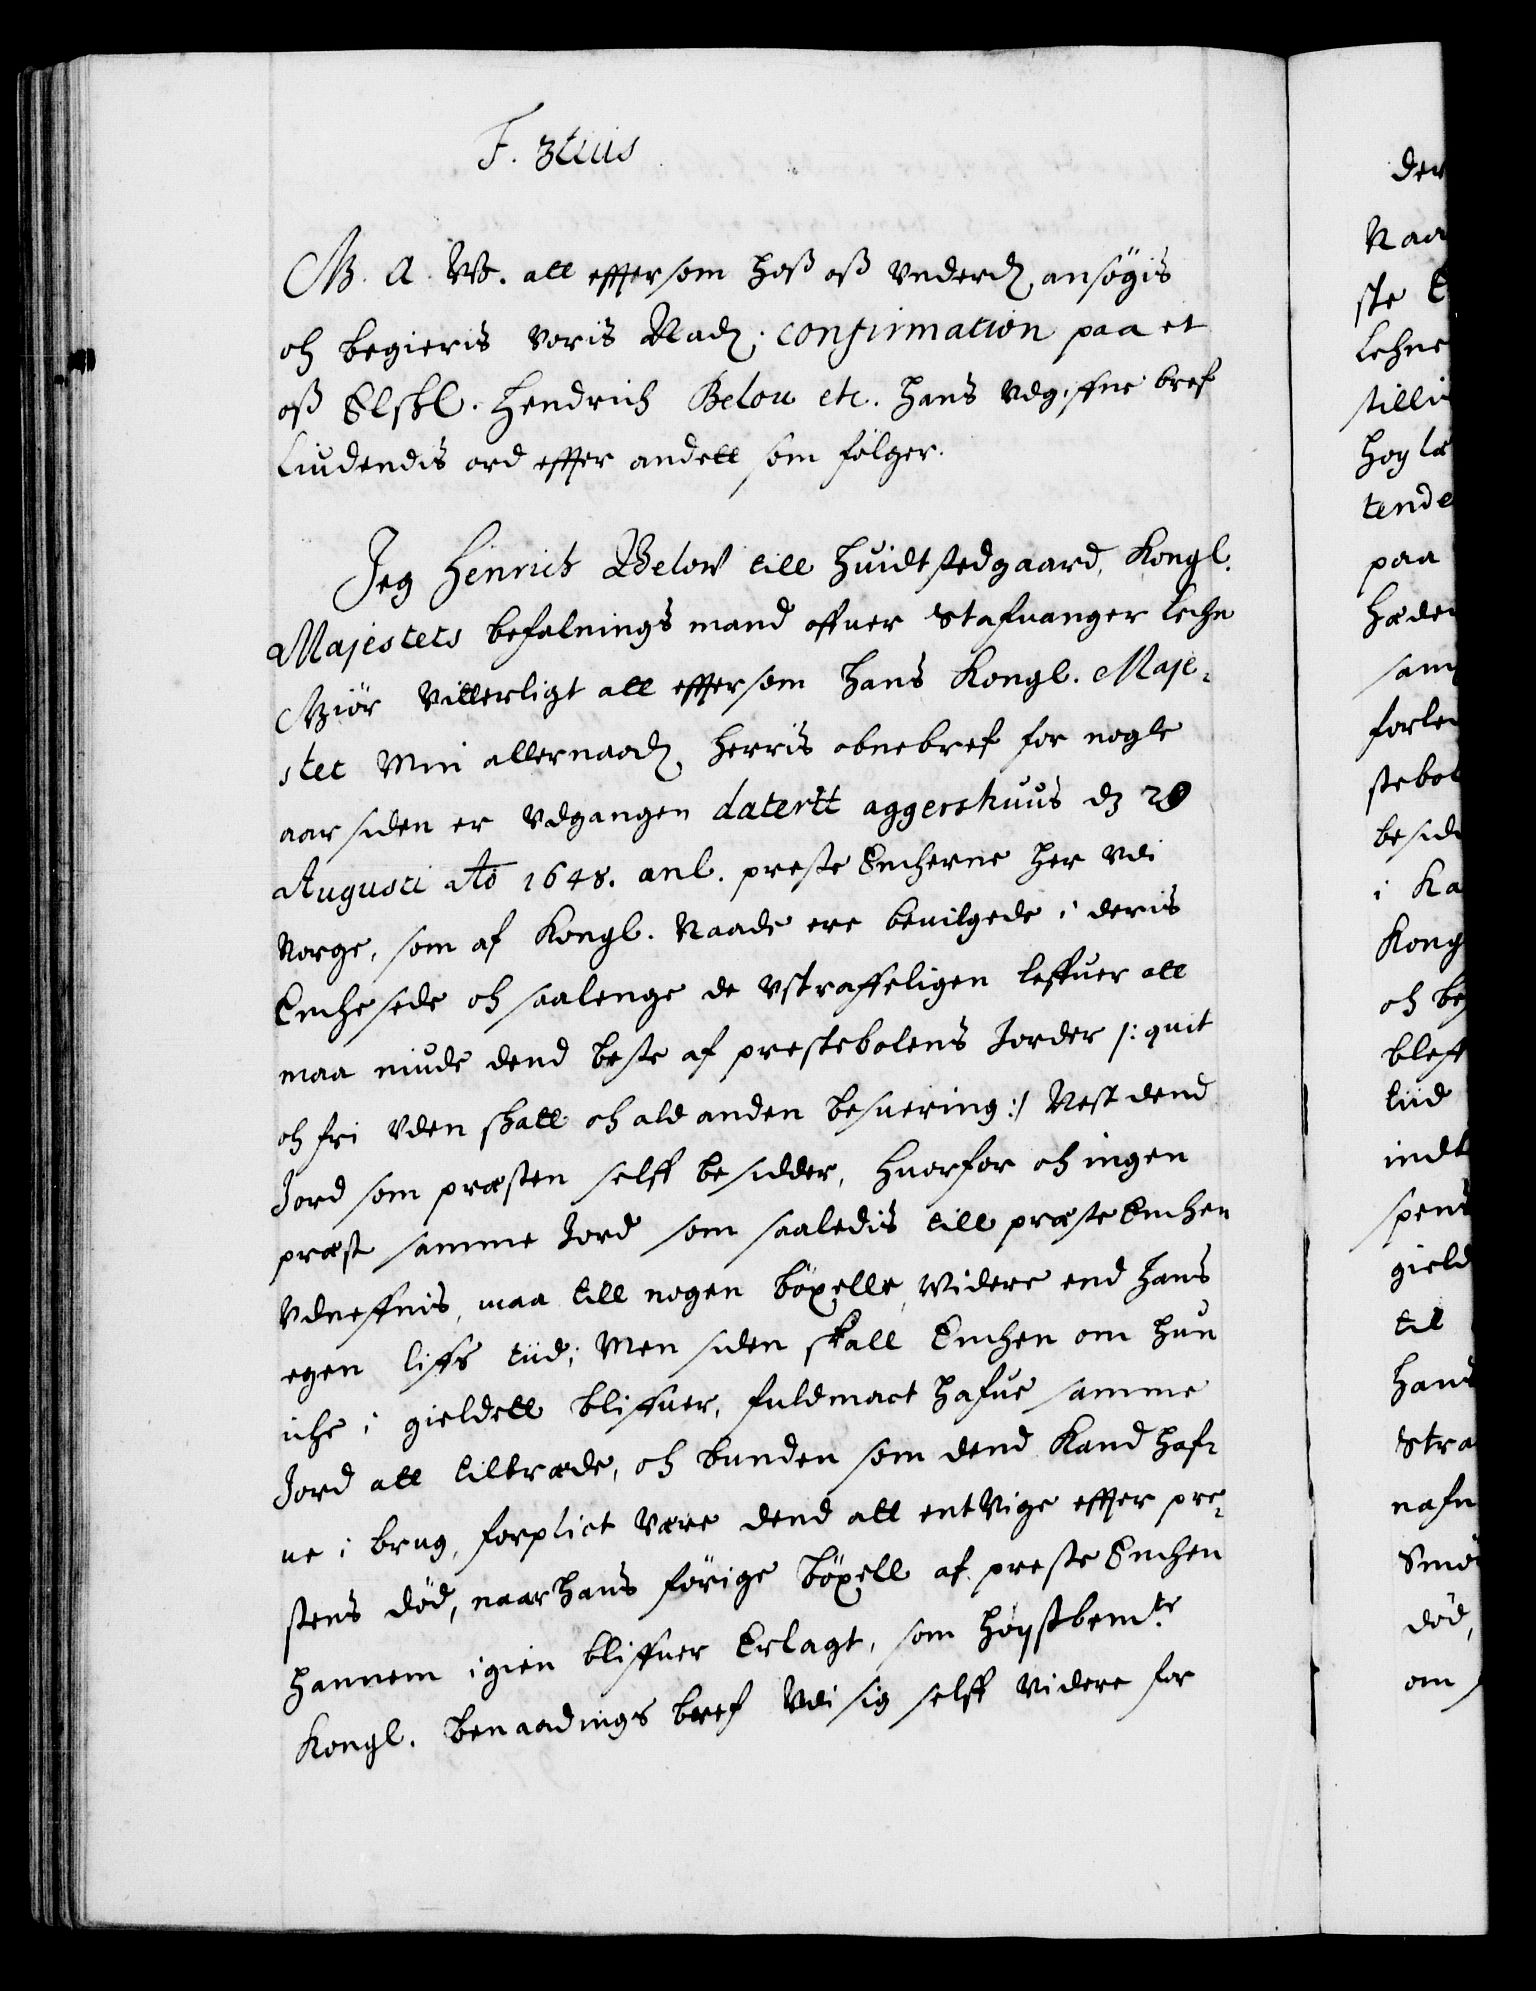 F. 3tius
G. A. W. att effter som hoß oß underd. ansögis
och begieris voris Naad. confirmation paa et
oß Elskl. Hendrich Belou etc. hans vdgiffne bref
Liudendis ord effter andett som fölger.
Jeg Henrich Below till Huidtstedgaard, Kongl.
Majestets befalnings mand offuer Stafuanger Lehn
Giör Vitterligt att effter som Hans Kongl. Maje-
stet Min allernaad. Herris obnebref for nogle
aar siden er vdgangen datertt aggershuus dz 29
Augusti Ao 1648. anl. preste Encherne her vdi
Norge, som af Kongl. Naade ere beuilgede i deris
Enchesede och saalenge de vstraffeligen leffuer att
maa niude dend beste af prestebolens Jorder /: quit
och fri vden skatt och ald anden besuering :/ Nest dend
Jord som præsten selff besidder, Huorfor och ingen
præst samme Jord som saaledis till præste Enchen
vdneffnis, maa till nogen böxelle, Widere end Hans
egen liffs tiid; Men siden skall Enchen om hun
iche i gieldett bliffuer, fuldmact hafue samme
Jord att tiltræde, och bunden som dend Kand haf-
ue i brug, forplict være dend att entvige effter pre-
stens död, naar hans förige böxell af preste Enchen
hannem igien bliffuer Erlagt, som höystbemte
Kongl. benaadings bref vdi sig selff videre for
der
Naa
ste
Lehne
stilli
hoy
tende
paa
sam
forle
stebol
besid
i Ka
Kong
och be
blef
tiid
indt
spens
gield
til
hans
stra
nafn
Smö
död,
om